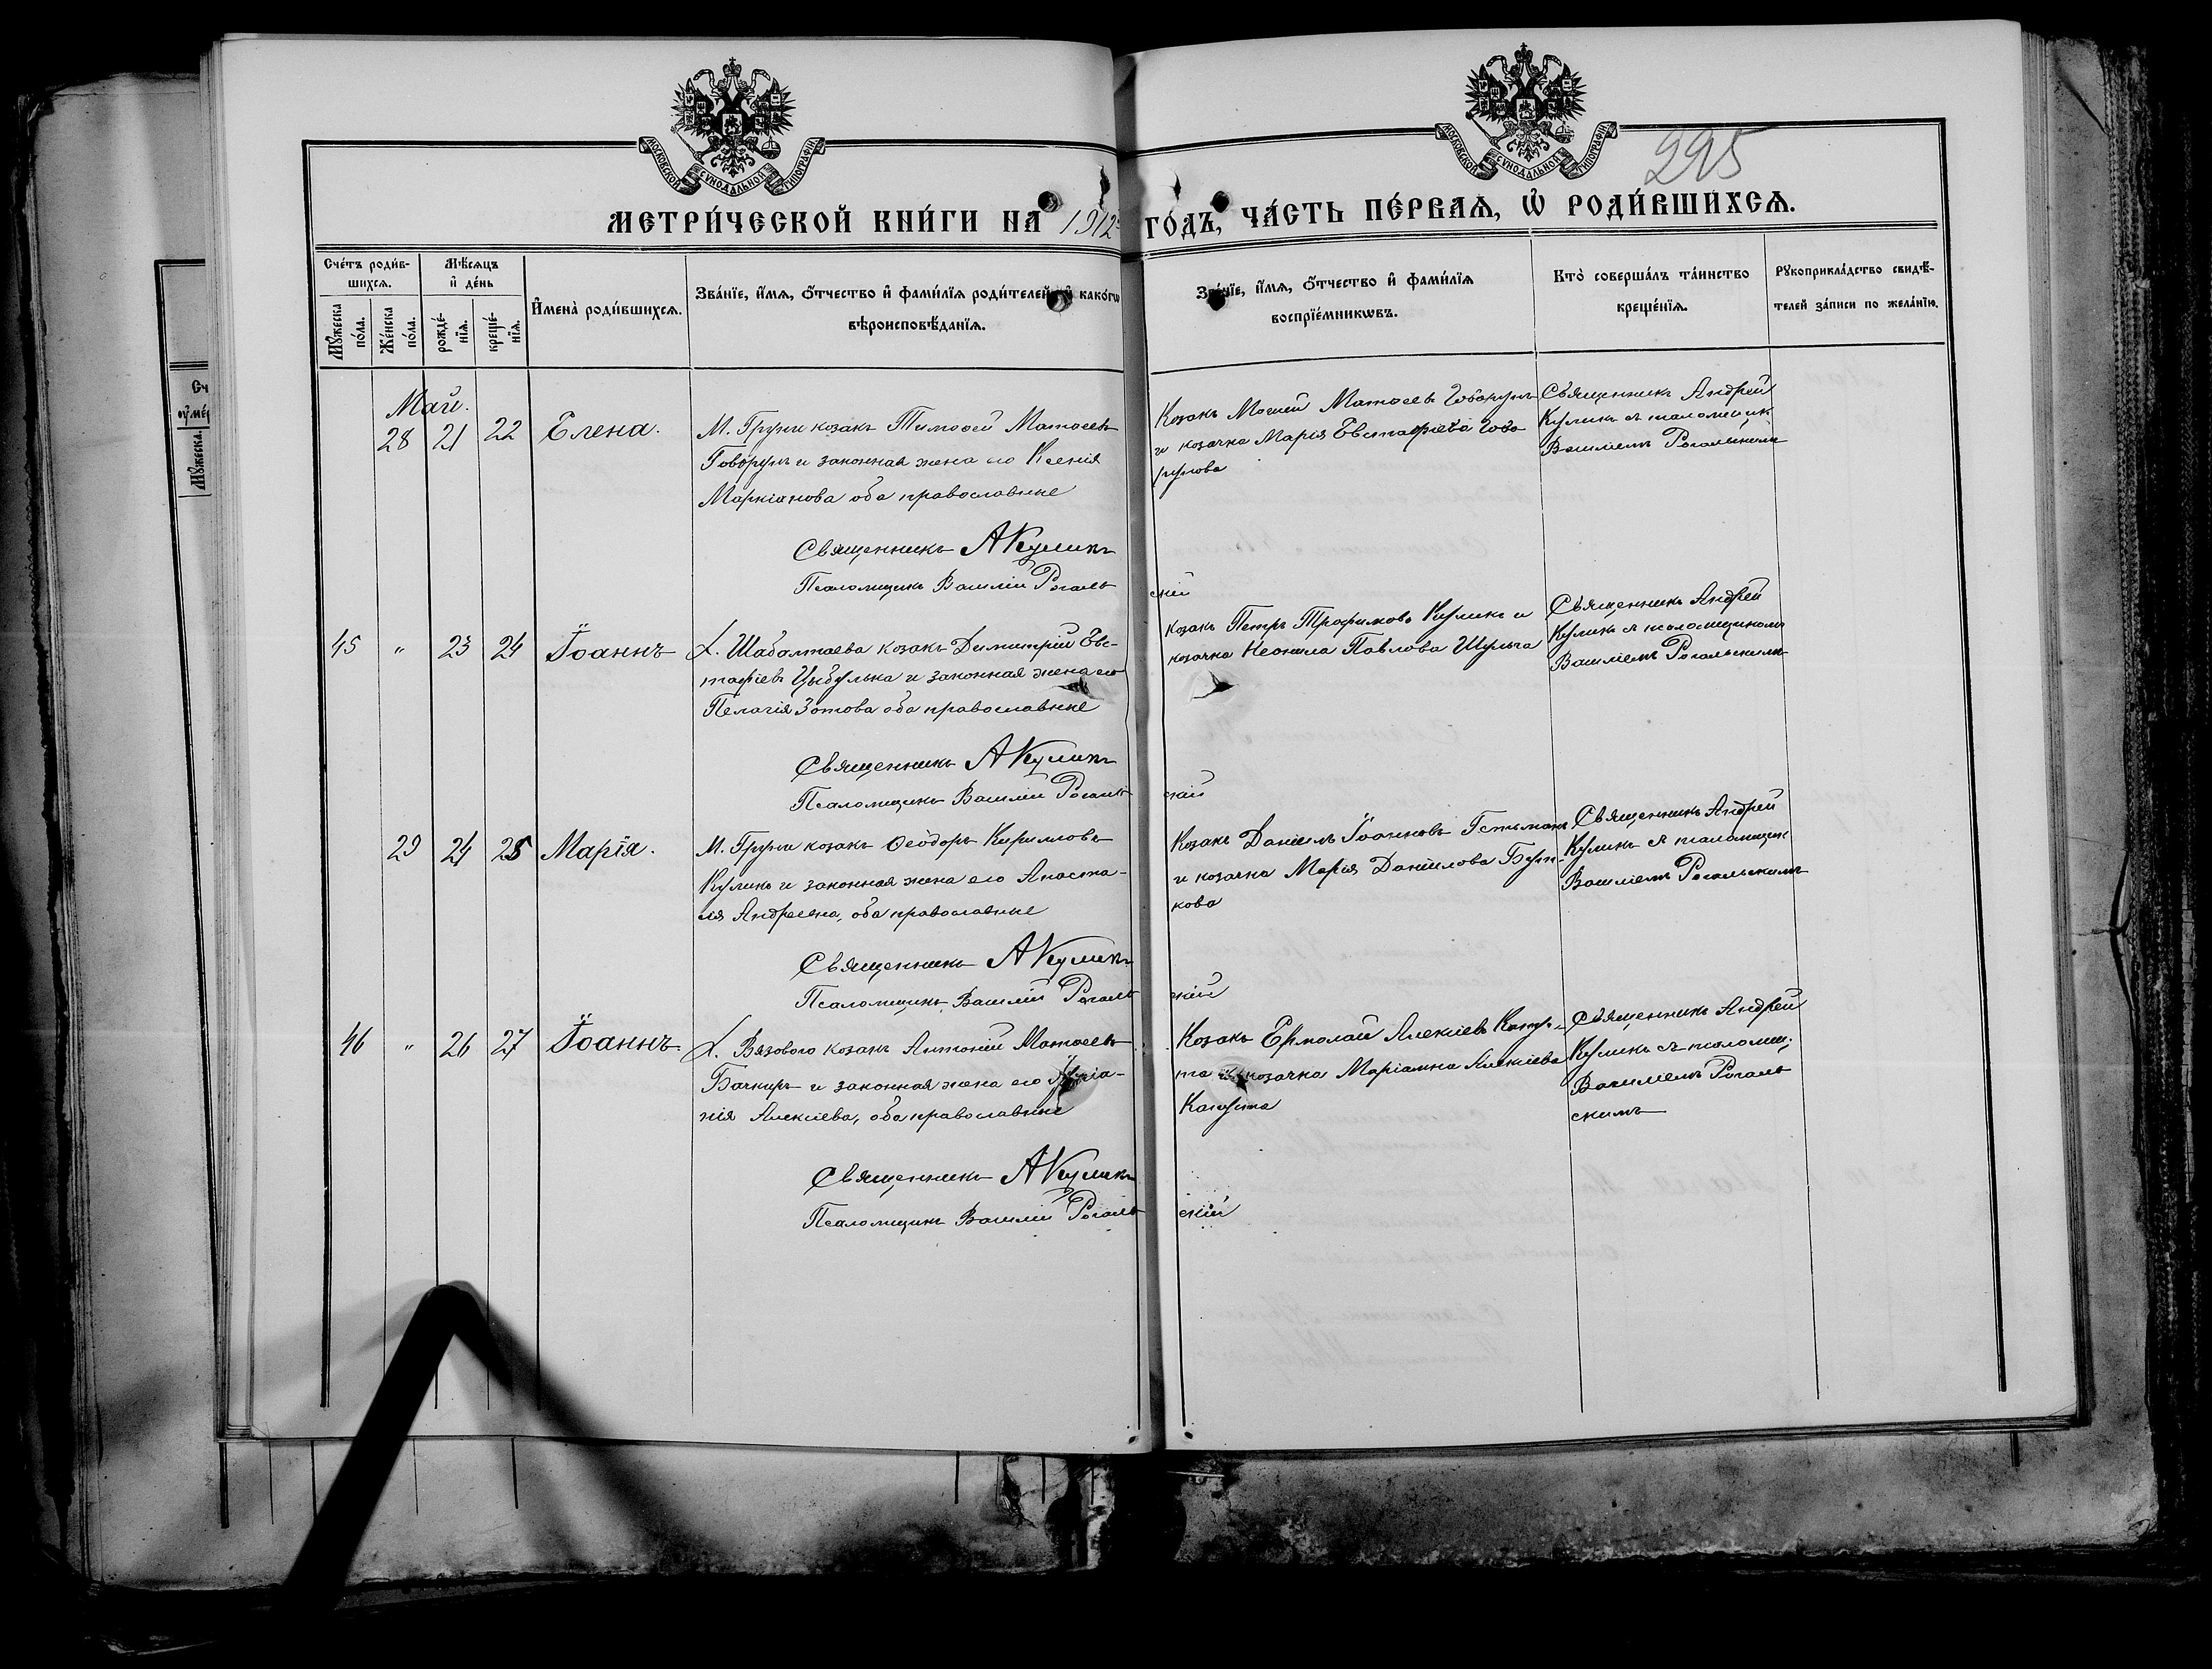 МОСКОВСКОЙ СѴНОДАЛЬНОЙ ТИПОГРАФІИ
МОСКОВСКОЙ СѴНОДАЛЬНОЙ ТИПОГРАФІИ
225
МЕТРИ́ЧЕСКОЙ КНИ́ГИ НА 1912 ГО́ДЪ, ЧА́СТЬ ПЕ́РВАѦ, Ѡ РОДИ́ВШИХСѦ.
Сче́тъ роди́в-
шихсѧ.
Мꙋ́жеска по́ла.
Же́нска по́ла.
Мѣ́сѧцъ
и҆ де́нь
рожде́-
нїѧ.
креще́-
нїѧ.
И҆мена̀ роди́вшихсѧ.
Зва́нїе, и҆́мѧ, ѻ҆́тчество и҆ фами́лїѧ роди́телей и҆ како́гѡ
вѣроисповѣ́данїѧ.
Зва́нїе, и҆́мѧ, ѻ҆́тчество и҆ фами́лїѧ
воспрїе́мникѡвъ.
Кто̀ соверша́лъ та́инство
креще́нїѧ.
Рꙋкоприкла́дство свидѣ́-
телей за́писи по жела́нїю.
Май.
28 21 22 Елена.
М. Груни козакъ Тимоѳей Матѳеевъ
Говорунъ и законная жена его Ксенія
Маркіанова оба православные
Священникъ АКуликъ
Псаломщикъ Василій Рогальскій
Козакъ Моисей Матѳеевъ Говорунъ
и козачка Марія Евстафіева Гово
рунова
Священникъ Андрей
Куликъ съ псаломщик
Василіемъ Рогальскимъ
45 " 23 24 Іоаннъ
Х. Шабалтаева козакъ Димитрій Евс-
тафіевъ Цыбулька и законная жена его
Пелагія Зотова оба православные
Священникъ АКуликъ
Псаломщикъ Василій Рогальскій
Козакъ Петръ Трофимовъ Куликъ и
козачка Неонила Павлова Шульга
Священникъ Андрей
Куликъ съ псаломщикомъ
Василіемъ Рогальскимъ
29 24 25 Марія.
М. Груни козакъ Ѳеодоръ Кирилловъ
Куликъ и законная жена его Анаста-
сія Андреевна, оба православные
Священникъ АКуликъ
Псаломщикъ Василій Рогальскій
Козакъ Даніилъ Іоанновъ Гетьманъ
и козачка Марія Даніилова Бурл-
кова
Священникъ Андрей
Куликъ съ псаломщик
Василіемъ Рогальскимъ
46 " 26 27 Іоаннъ.
Х. Вязового козакъ Антоній Матѳеевъ
Бачкиръ и законная жена его
нія Алексіева, оба православные
Священникъ АКуликъ
Псаломщикъ Василій Рогальскій
Козакъ Ермолай Алексіевъ Капус-
та и козачка Маріамна Алексіева
Капуста
Священникъ Андрей
Куликъ съ псаломщ.
Василіемъ Рогаль
скимъ